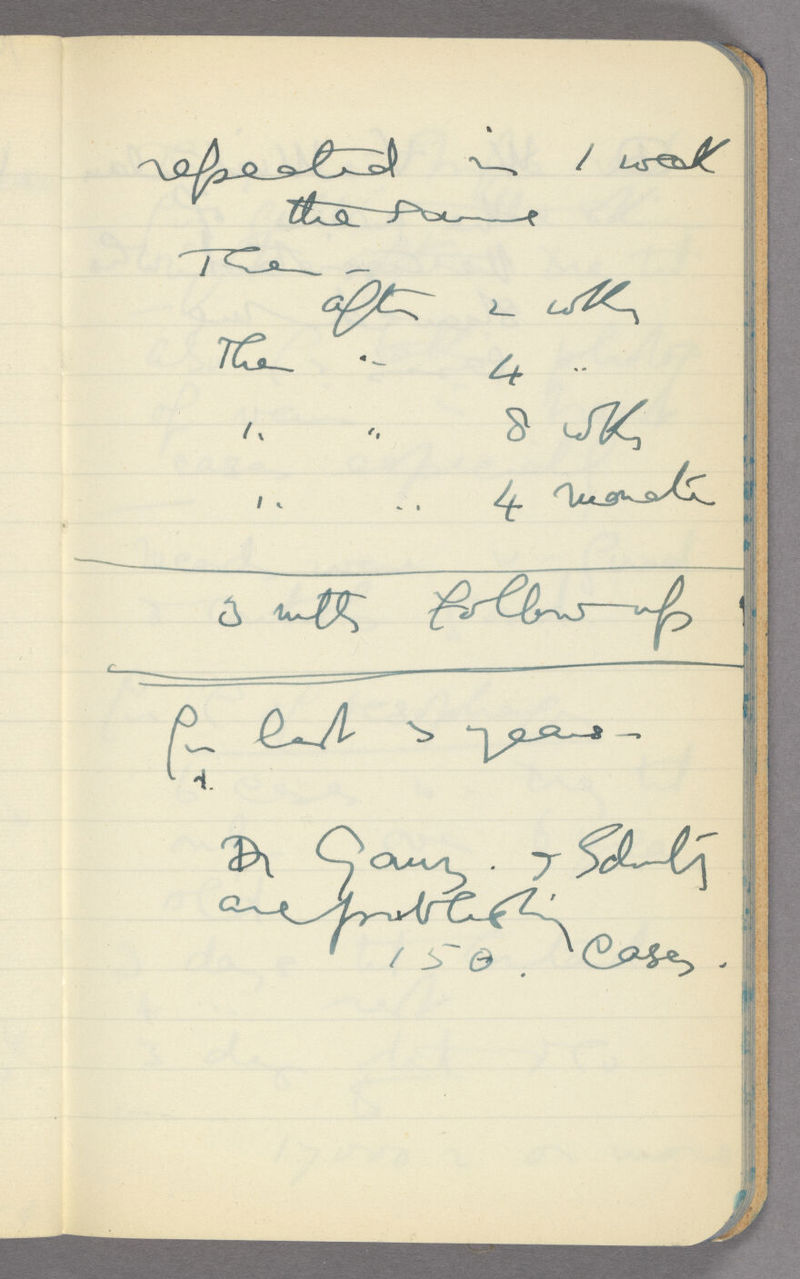 repeated in 1 week
the same
Then -
after 2 wks
Then " 4 "
" " 8 wks
" " 4 months
3 mths Follow-up
In last 3 years -
Dr Ganz. & Schultz
are publishing
150. Cases.